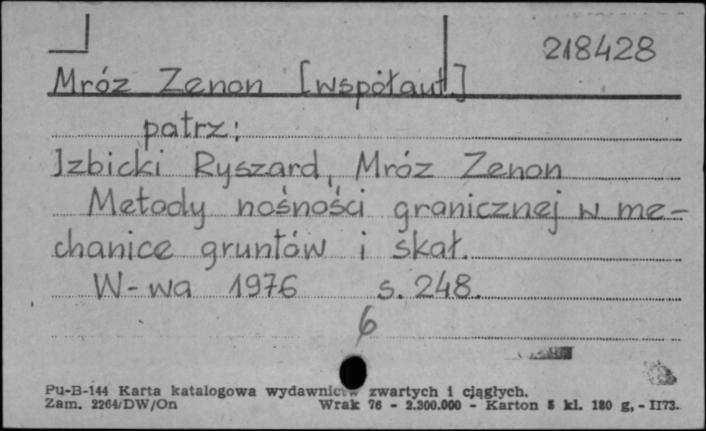 218428
Mróz Zenon [współaut.]
patrz:
Izbicki Ryszard, Mróz Zenon
Metody nośności granicznej w me-
chanice gruntów i skał.
W-wa 1976 s. 248.
6
Pu-B-144 Karta katalogowa wydawnictw zwartych i ciągłych.
Zam. 2264/DW/On Wrak 76 - 2.300.000 - Karton 5 kl. 180 g, - II73.